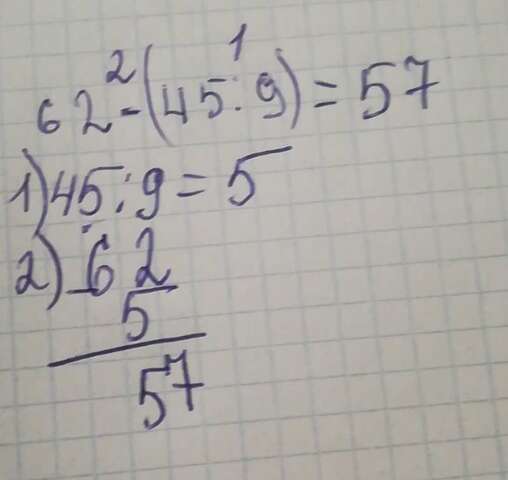 2 1
62-(45:9)=57
1) 45:9=5
2) -62
5
57